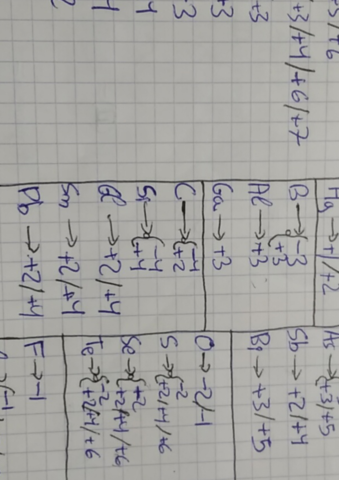 +3/+4/+6/+7
+3
Hg → +1/+2
B → -3
+3
Al → +3
Ga → +3
C → -4
+2
Si → -4
+4
→ +2/+4
Sn → +2/+4
Pb → +2/+4
+3/+5
Sb → +2/+4
Bi → +3/+5
O → -2/-1
S → -2
+2/+4/+6
Se → +2
+2/+4/+6
Te → -2
+2/+4/+6
F → -1